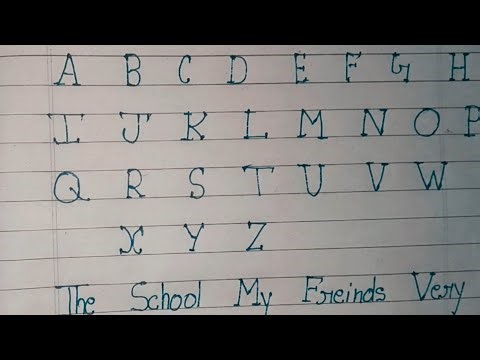 A B C D E F G H
I J K L M N O P
Q R S T U V W
X Y Z
The School My Freinds Very